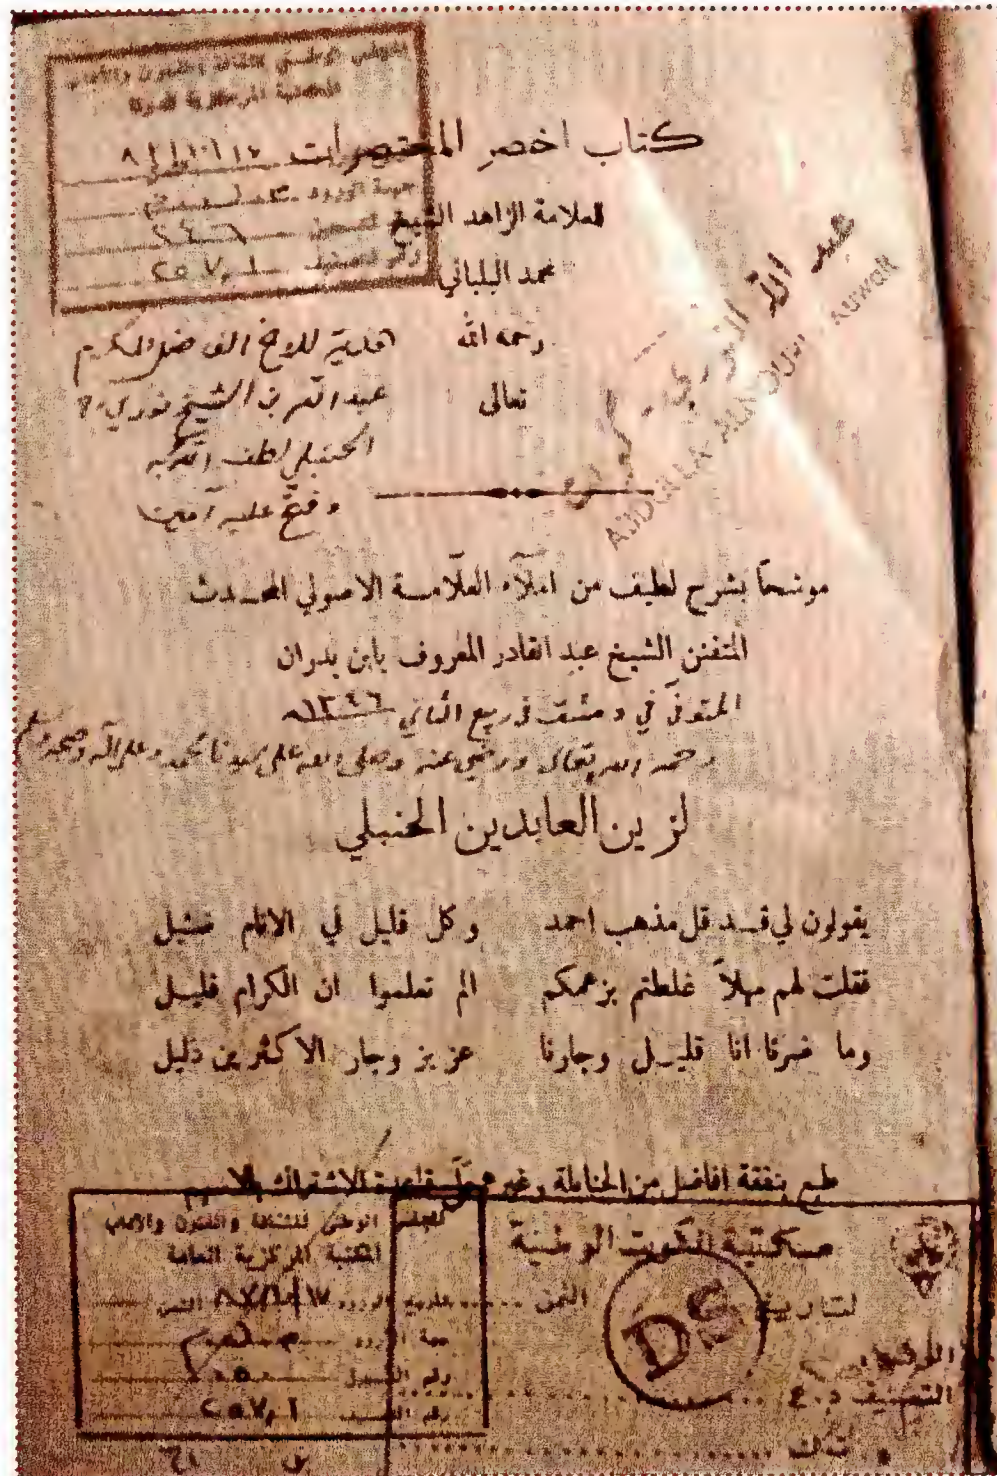 المجلس الوطني للثقافة والفنون والآداب
كتاب اخصر المختصرات
للعلامة الزاهد الشيخ
محمد البلباني
رحمه الله
تعالى
هدية للاخ الفاضل الكريم
عبد الله بن الشيخ نوري
الحنبلي لطف الله به
وفتح عليه آمين
عبد الله النوري - كويت
ABDULLA ALNOURI - KUWAIT
موشحاً بشرح لطيف من املآء العلّامة الاصولي المحدث
المتفنن الشيخ عبد القادر المعروف بابن بدران
المتوفى في دمشق في ربيع الثاني ١٣٤٦
رحمه الله تعالى ورضي عنه وصلى الله على سيدنا محمد وعلى آله وصحبه وسلم
لزين العابدين الحنبلي
يقولون لي قد قل مذهب احمد وكل قليل في الانام ضئيل
فقلت لهم مهلاً غلطتم بزعمكم الم تعلموا ان الكرام قليل
وما ضرنا انا قليل وجارنا عزيز وجار الاكثرين ذليل
طبع بنفقة افاضل من الحنابلة وغيرهم على قاعدة الاشتراك بالاسهم
المجلس الوطني للثقافة والفنون والآداب
المكتبة المركزية العامة
تاريخ الورود
جهة الورود
رقم التسجيل
رقم التصنيف
مكتبة الكويت الوطنية
التاريخ الثمن
DS
التصنيف